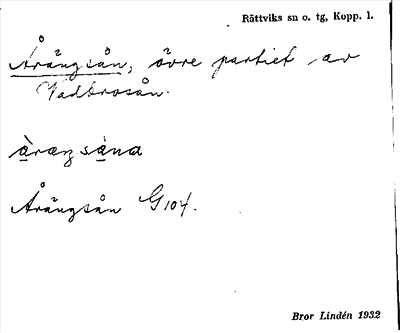 Rättviks sn o. tg, Kopp. l.
Årängsån, övre partiet av
Vådbrosån.
àræŋsàna
Årängsån G104.
Bror Lindén 1932